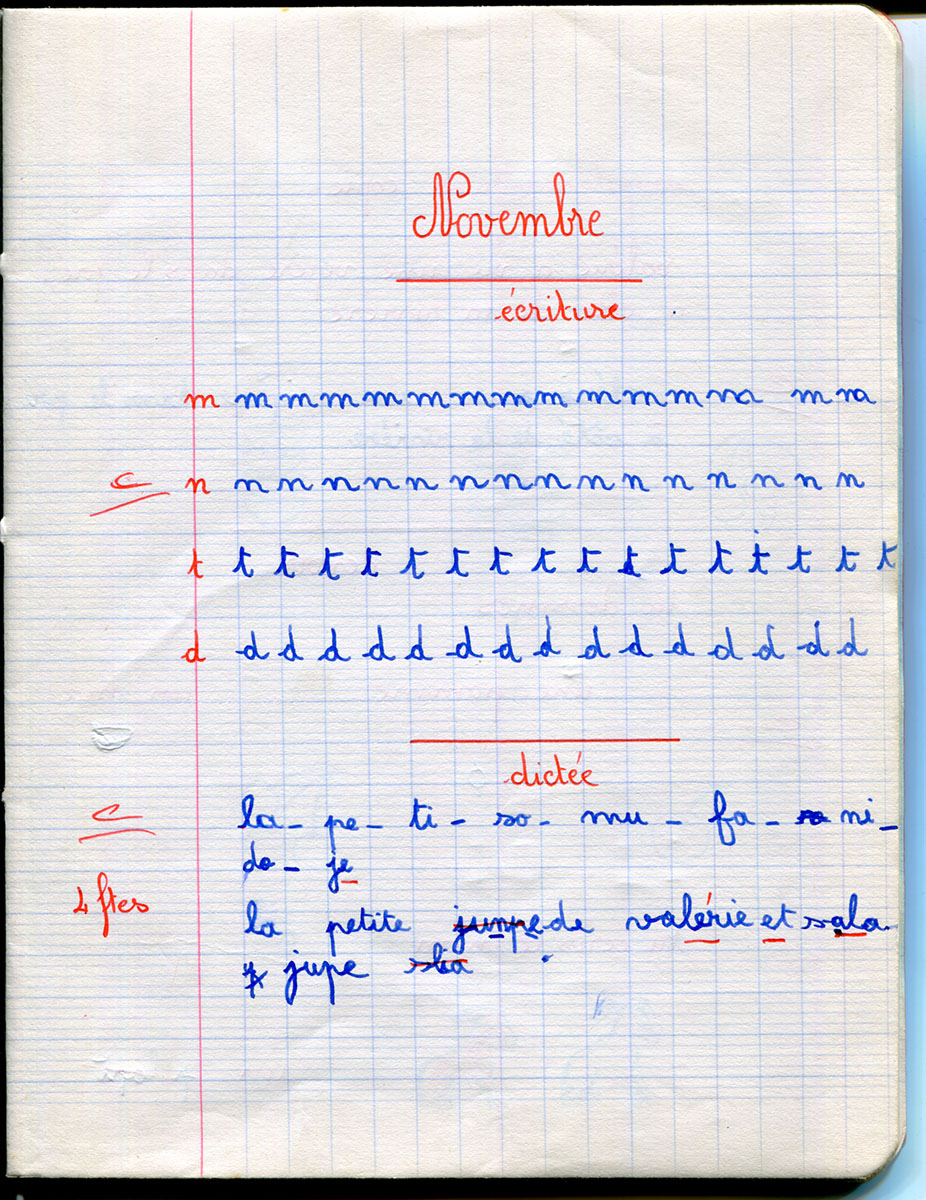 Novembre
écriture
m m m m m m m m m m m m na m na
c n n n n n n n n n n n n n n n n
t t t t t t t t t t t t t t t t t
d d d d d d d d d d d d d d d d
dictée
c la - pe - ti - so - mu - fa - ni -
do - je
4 ftes la petite junpe de valérie et sala
jupe